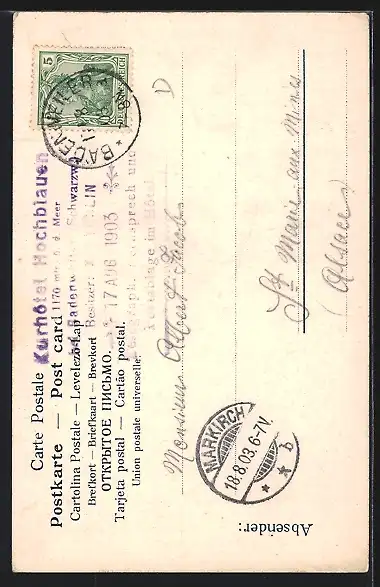 Carte Postale
Postkarte — Post card
Cartolina Postale — Levelező-Lap
Brefkort — Briefkaart — Brevkort
ОТКРЫТОЕ ПИСЬМО.
Tarjeta postal — Cartão postal.
Union postale universelle.
Kurhôtel Hochblauen
1170 mtr ü. d. Meer
bei Badenweiler Schwarzw
Besitzer:
17 AUG 1903
Telegraph. Fernsprech und
im Hôtel
5
DEUTSCHES REICH
BADENWEILER
D
Monsieur Albert Jacob
Ste Marie aux Mines
(Alsace)
MARKIRCH
18.8.03.6-7V.
b
Absender: